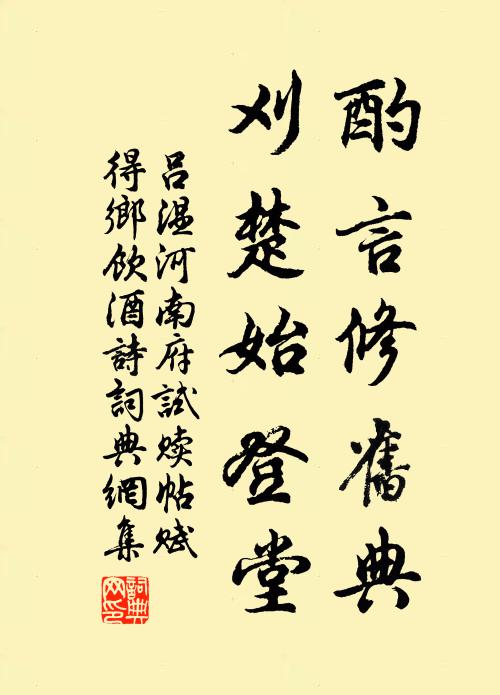 酌言修舊典
刈楚始登堂
吕温河南府試贖帖賦
得鄉飲酒詩詞典網集